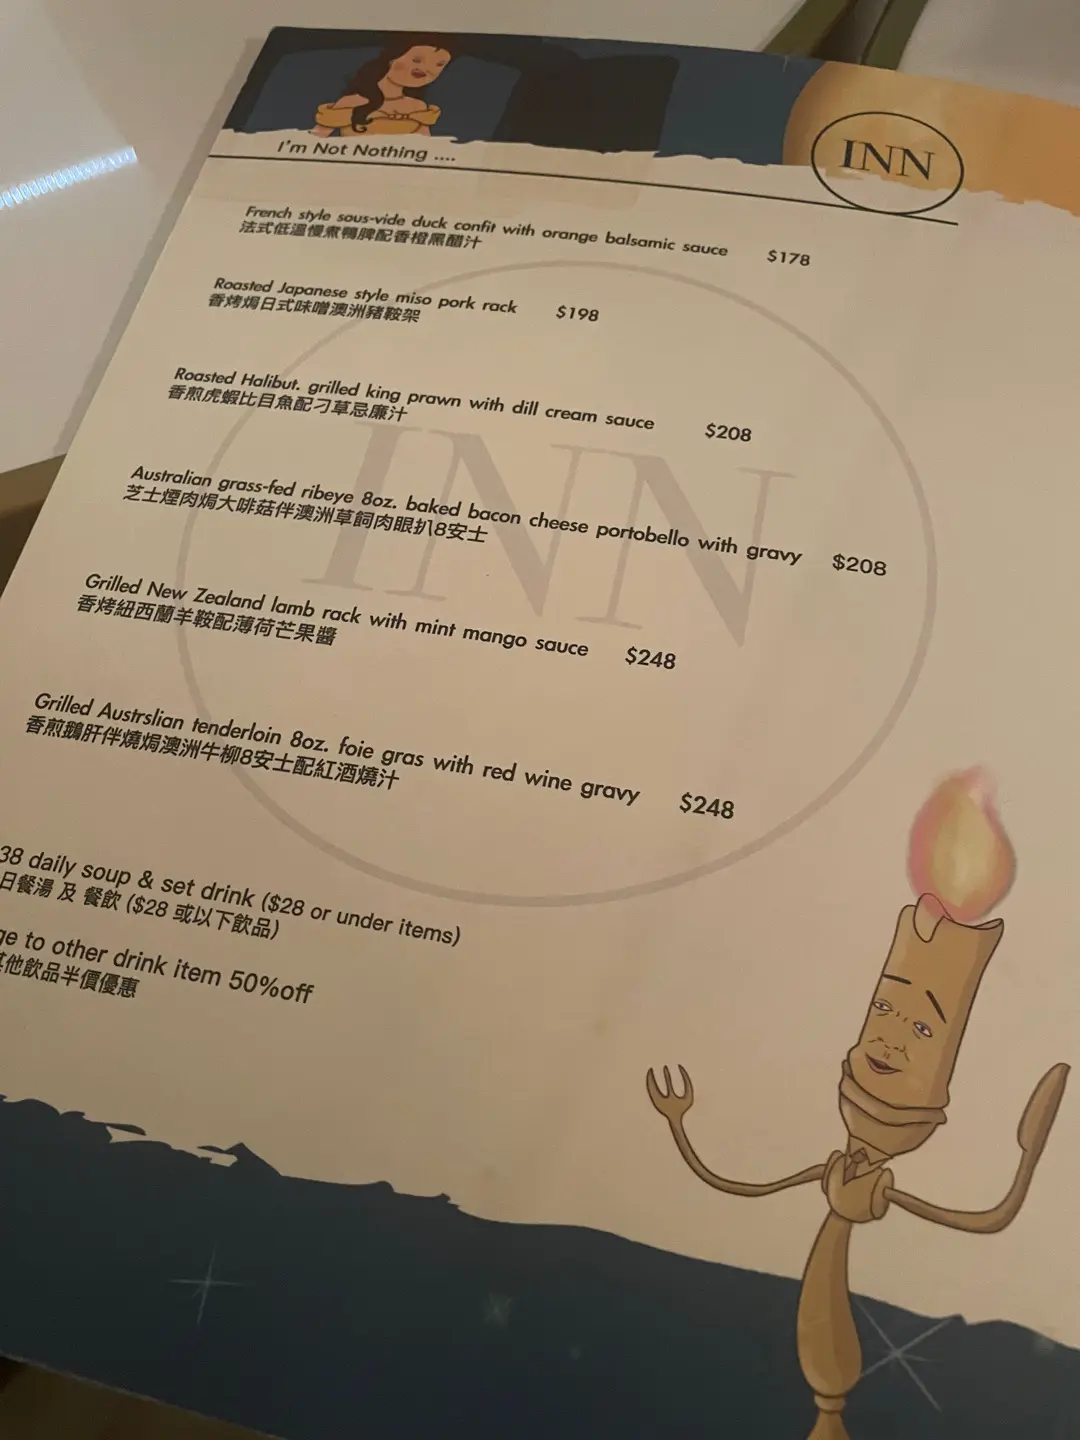 I'm Not Nothing ....
INN
French style sous-vide duck confit with orange balsamic sauce $178
法式低溫慢煮鴨脾配香橙黑醋汁
Roasted Japanese style miso pork rack $198
香烤焗日式味噌澳洲豬鞍架
Roasted Halibut. grilled king prawn with dill cream sauce $208
香煎虎蝦比目魚配刁草忌廉汁
INN
Australian grass-fed ribeye 8oz. baked bacon cheese portobello with gravy $208
芝士煙肉焗大啡菇伴澳洲草飼肉眼扒8安士
Grilled New Zealand lamb rack with mint mango sauce $248
香烤紐西蘭羊鞍配薄荷芒果醬
Grilled Austrslian tenderloin 8oz. foie gras with red wine gravy $248
香煎鵝肝伴燒焗澳洲牛柳8安士配紅酒燒汁
38 daily soup & set drink ($28 or under items)
日餐湯 及 餐飲 ($28 或以下飲品)
ge to other drink item 50%off
其他飲品半價優惠